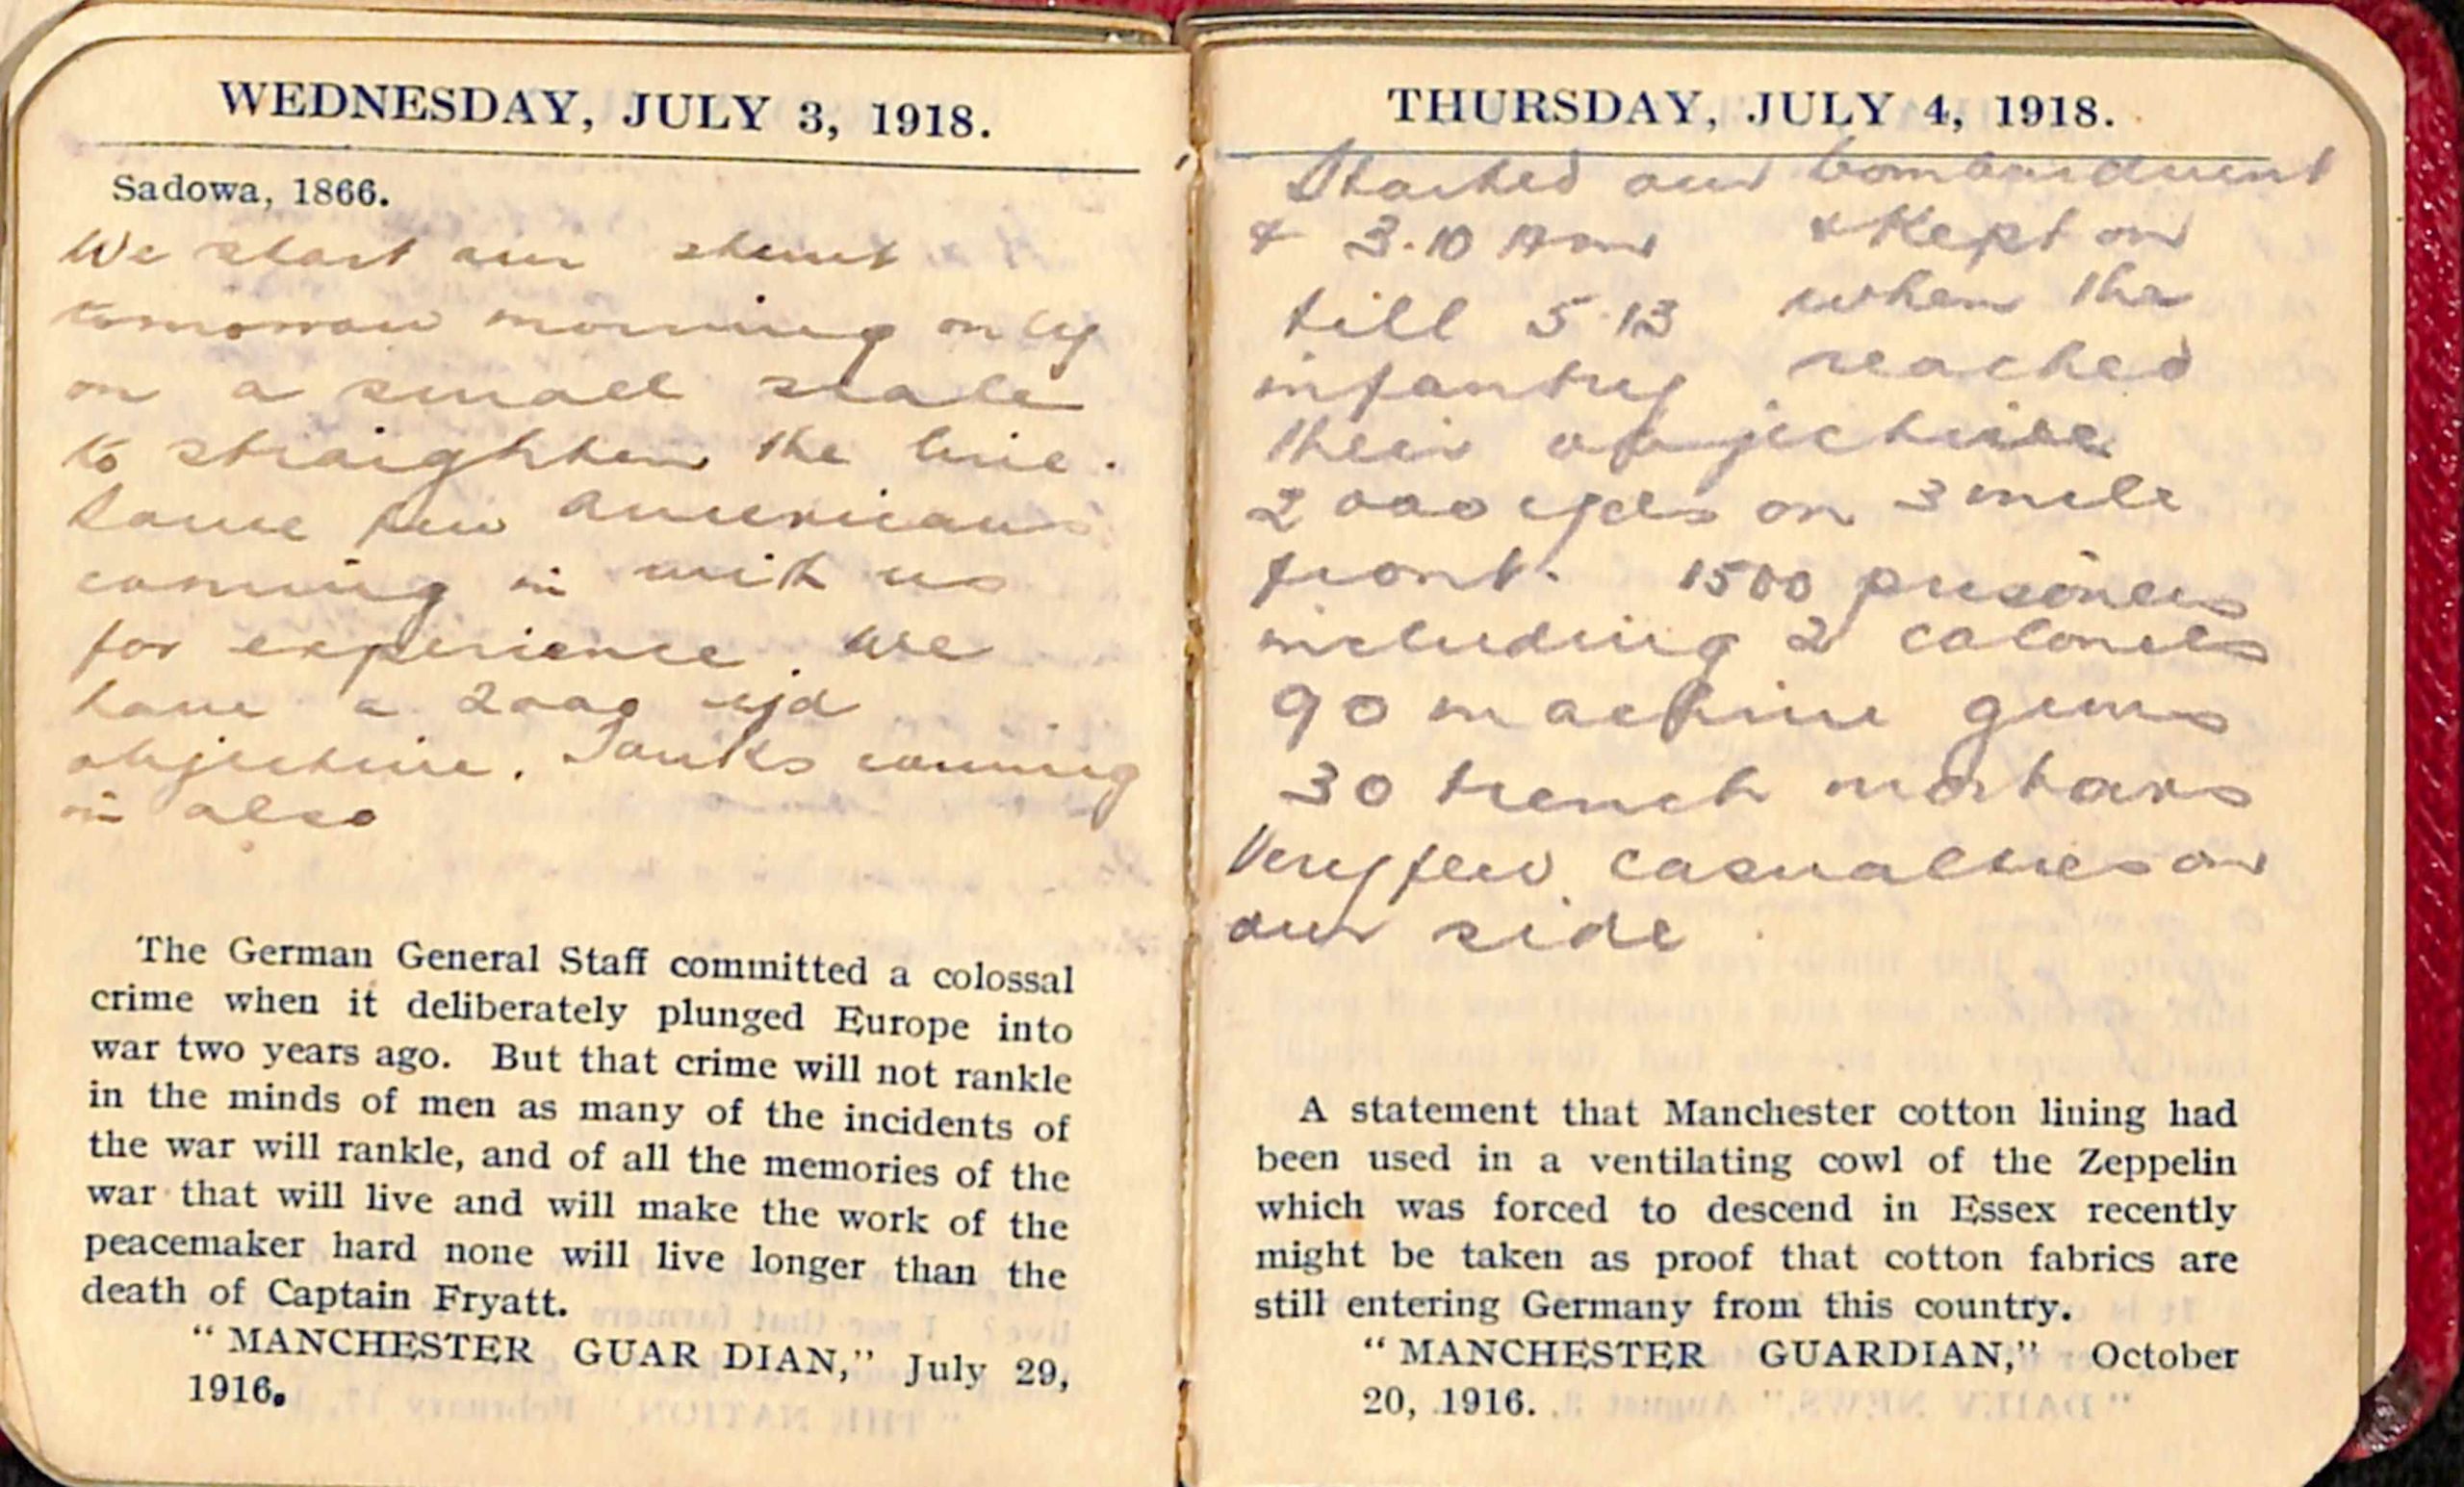 WEDNESDAY, JULY 3, 1918.
Sadowa, 1866.
We start our stunt
tomorrow morning only
on a small scale
to straighten the line.
have few Americans
coming in with us
for experience. We
have a 2000 yd
objective. Tanks coming
in also
The German General Staff committed a colossal
crime when it deliberately plunged Europe into
war two years ago. But that crime will not rankle
in the minds of men as many of the incidents of
the war will rankle, and of all the memories of the
war that will live and will make the work of the
peacemaker hard none will live longer than the
death of Captain Fryatt.
"MANCHESTER GUAR DIAN," July 29,
1916.
THURSDAY, JULY 4, 1918.
Started our bombardment
& 3.10 Am & Kept on
till 5.13 when the
infantry reached
their objective
2000 yds on 3 mile
front. 1500 prisoners
including 2 colonels
90 machine guns
30 trench mortars
Very few casualties on
our side
A statement that Manchester cotton lining had
been used in a ventilating cowl of the Zeppelin
which was forced to descend in Essex recently
might be taken as proof that cotton fabrics are
still entering Germany from this country.
"MANCHESTER GUARDIAN," October
20, 1916.